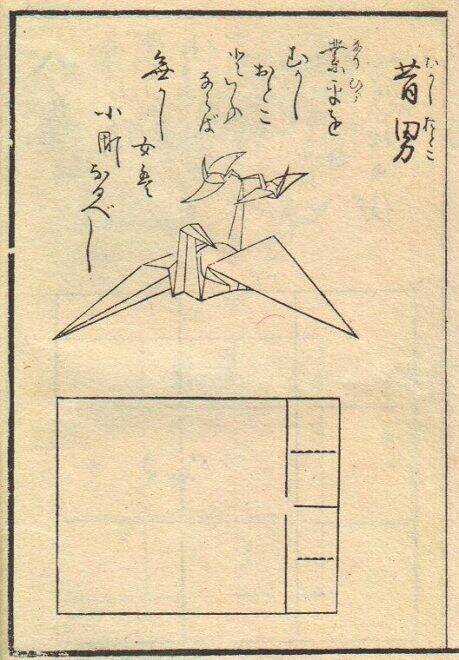 むかしおとこ
昔男
なりひら
業平を
むかし
おとこ
といふ
ならば
無かし
女は
小町
なるべし